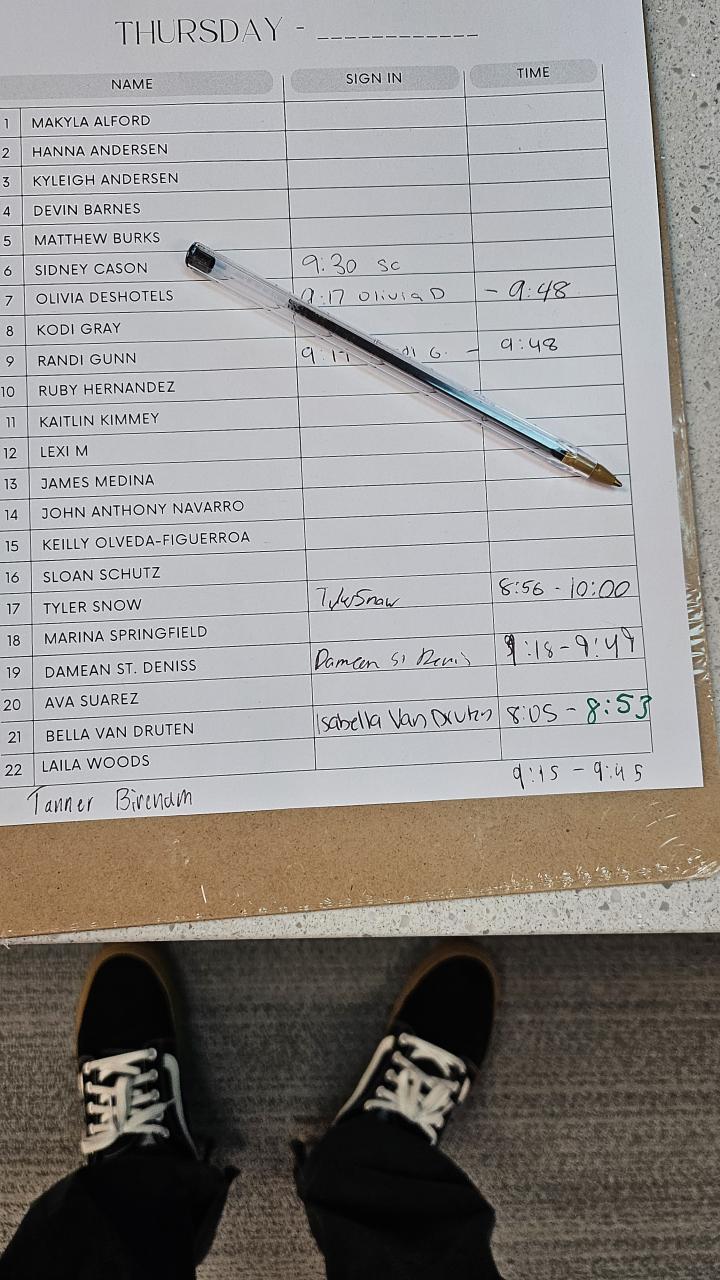 THURSDAY - ____________
NAME SIGN IN TIME
1 MAKYLA ALFORD
2 HANNA ANDERSEN
3 KYLEIGH ANDERSEN
4 DEVIN BARNES
5 MATTHEW BURKS
6 SIDNEY CASON 9:30 SC
7 OLIVIA DESHOTELS 9:17 Olivia D - 9:48
8 KODI GRAY
9 RANDI GUNN G. - 9:48
10 RUBY HERNANDEZ
11 KAITLIN KIMMEY
12 LEXI M
13 JAMES MEDINA
14 JOHN ANTHONY NAVARRO
15 KEILLY OLVEDA-FIGUERROA
16 SLOAN SCHUTZ
17 TYLER SNOW Tyler Snow 8:56 - 10:00
18 MARINA SPRINGFIELD
19 DAMEAN ST. DENISS Damean St Denis 9:18-9:49
20 AVA SUAREZ
21 BELLA VAN DRUTEN Isabella Van Druten 8:05 - 8:53
22 LAILA WOODS
Tanner 9:15 - 9:45